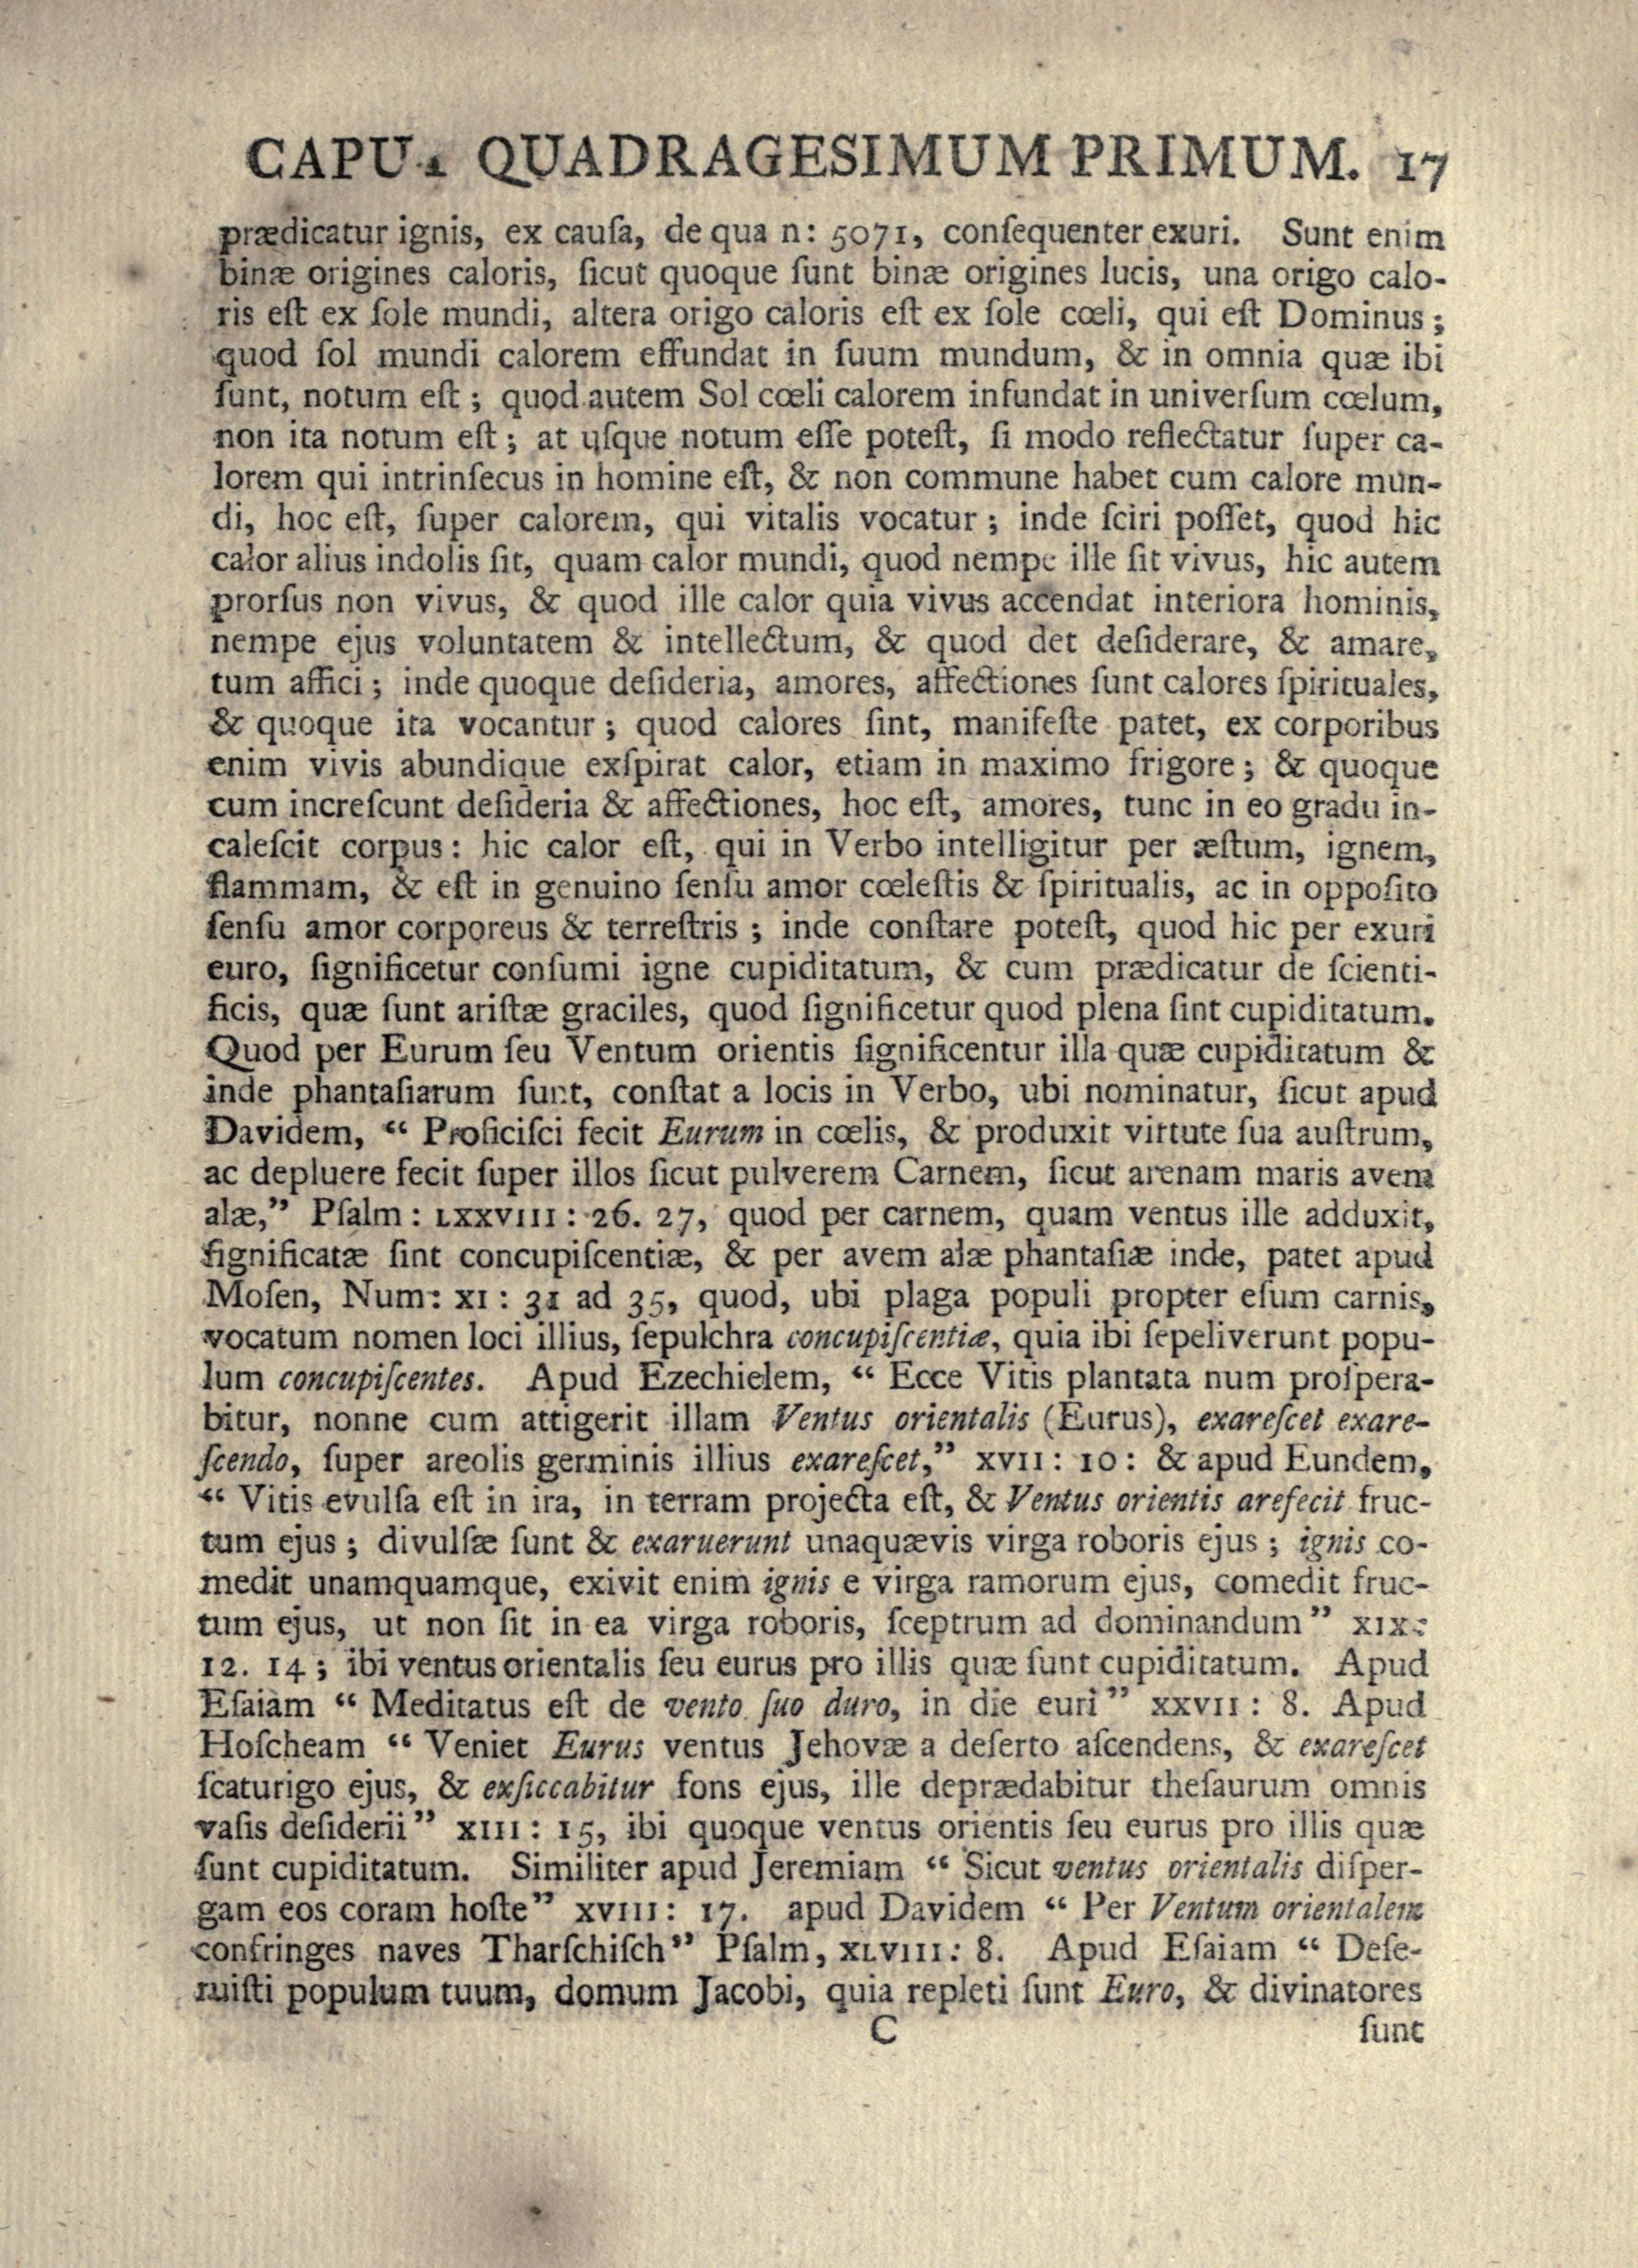 CAPUT QUADRAGESIMUM PRIMUM. 17
prædicatur ignis, ex cauſa, de qua n: 5071, conſequenter exuri. Sunt enim
binæ origines caloris, ſicut quoque ſunt binæ origines lucis, una origo calo-
ris eſt ex ſole mundi, altera origo caloris eſt ex ſole cœli, qui eſt Dominus;
quod ſol mundi calorem effundat in ſuum mundum, & in omnia quæ ibi
ſunt, notum eſt; quod autem Sol cœli calorem infundat in univerſum cœlum,
non ita notum eſt; at uſque notum eſſe poteſt, ſi modo reflectatur ſuper ca-
lorem qui intrinſecus in homine eſt, & non commune habet cum calore mun-
di, hoc eſt, ſuper calorem, qui vitalis vocatur; inde ſciri poſſet, quod hic
calor alius indolis ſit, quam calor mundi, quod nempe ille ſit vivus, hic autem
prorſus non vivus, & quod ille calor quia vivus accendat interiora hominis,
nempe ejus voluntatem & intellectum, & quod det deſiderare, & amare,
tum affici; inde quoque deſideria, amores, affectiones ſunt calores ſpirituales,
& quoque ita vocantur; quod calores ſint, manifeſte patet, ex corporibus
enim vivis abundique exſpirat calor, etiam in maximo frigore; & quoque
cum increſcunt deſideria & affectiones, hoc eſt, amores, tunc in eo gradu in-
caleſcit corpus: hic calor eſt, qui in Verbo intelligitur per æſtum, ignem,
flammam, & eſt in genuino ſenſu amor cœleſtis & ſpiritualis, ac in oppoſito
ſenſu amor corporeus & terreſtris; inde conſtare poteſt, quod hic per exuri
euro, ſignificetur conſumi igne cupiditatum, & cum prædicatur de ſcienti-
ficis, quæ ſunt ariſtæ graciles, quod ſignificetur quod plena ſint cupiditatum.
Quod per Eurum ſeu Ventum orientis ſignificentur illa quæ cupiditatum &
inde phantaſiarum ſunt, conſtat a locis in Verbo, ubi nominatur, ſicut apud
Davidem, “ Proficiſci fecit Eurum in cœlis, & produxit virtute ſua auſtrum,
ac depluere fecit ſuper illos ſicut pulverem Carnem, ſicut arenam maris avem
alæ,” Pſalm: LXXVIII: 26. 27, quod per carnem, quam ventus ille adduxit,
ſignificatæ ſint concupiſcentiæ, & per avem alæ phantaſiæ inde, patet apud
Moſen, Num: XI: 31 ad 35, quod, ubi plaga populi propter eſum carnis,
vocatum nomen loci illius, ſepulchra concupiſcentiæ, quia ibi ſepeliverunt popu-
lum concupiſcentes. Apud Ezechielem, “ Ecce Vitis plantata num proſpera-
bitur, nonne cum attigerit illam Ventus orientalis (Eurus), exareſcet exare-
ſcendo, ſuper areolis germinis illius exareſcet,” XVII: 10: & apud Eundem,
“ Vitis evulſa eſt in ira, in terram projecta eſt, & Ventus orientis arefecit fruc-
tum ejus; divulſæ ſunt & exaruerunt unaquævis virga roboris ejus; ignis co-
medit unamquamque, exivit enim ignis e virga ramorum ejus, comedit fruc-
tum ejus, ut non ſit in ea virga roboris, ſceptrum ad dominandum” XIX:
12. 14; ibi ventus orientalis ſeu eurus pro illis quæ ſunt cupiditatum. Apud
Eſaiam “ Meditatus eſt de vento ſuo duro, in die euri” XXVII: 8. Apud
Hoſcheam “ Veniet Eurus ventus Jehovæ a deſerto aſcendens, & exareſcet
ſcaturigo ejus, & exſiccabitur fons ejus, ille deprædabitur theſaurum omnis
vaſis deſiderii” XIII: 15, ibi quoque ventus orientis ſeu eurus pro illis quæ
ſunt cupiditatum. Similiter apud Jeremiam “ Sicut ventus orientalis diſper-
gam eos coram hoſte” XVIII: 17. apud Davidem “ Per Ventum orientalem
confringes naves Tharſchiſch” Pſalm, XLVIII: 8. Apud Eſaiam “ Deſe-
ruiſti populum tuum, domum Jacobi, quia repleti ſunt Euro, & divinatores
C ſunt